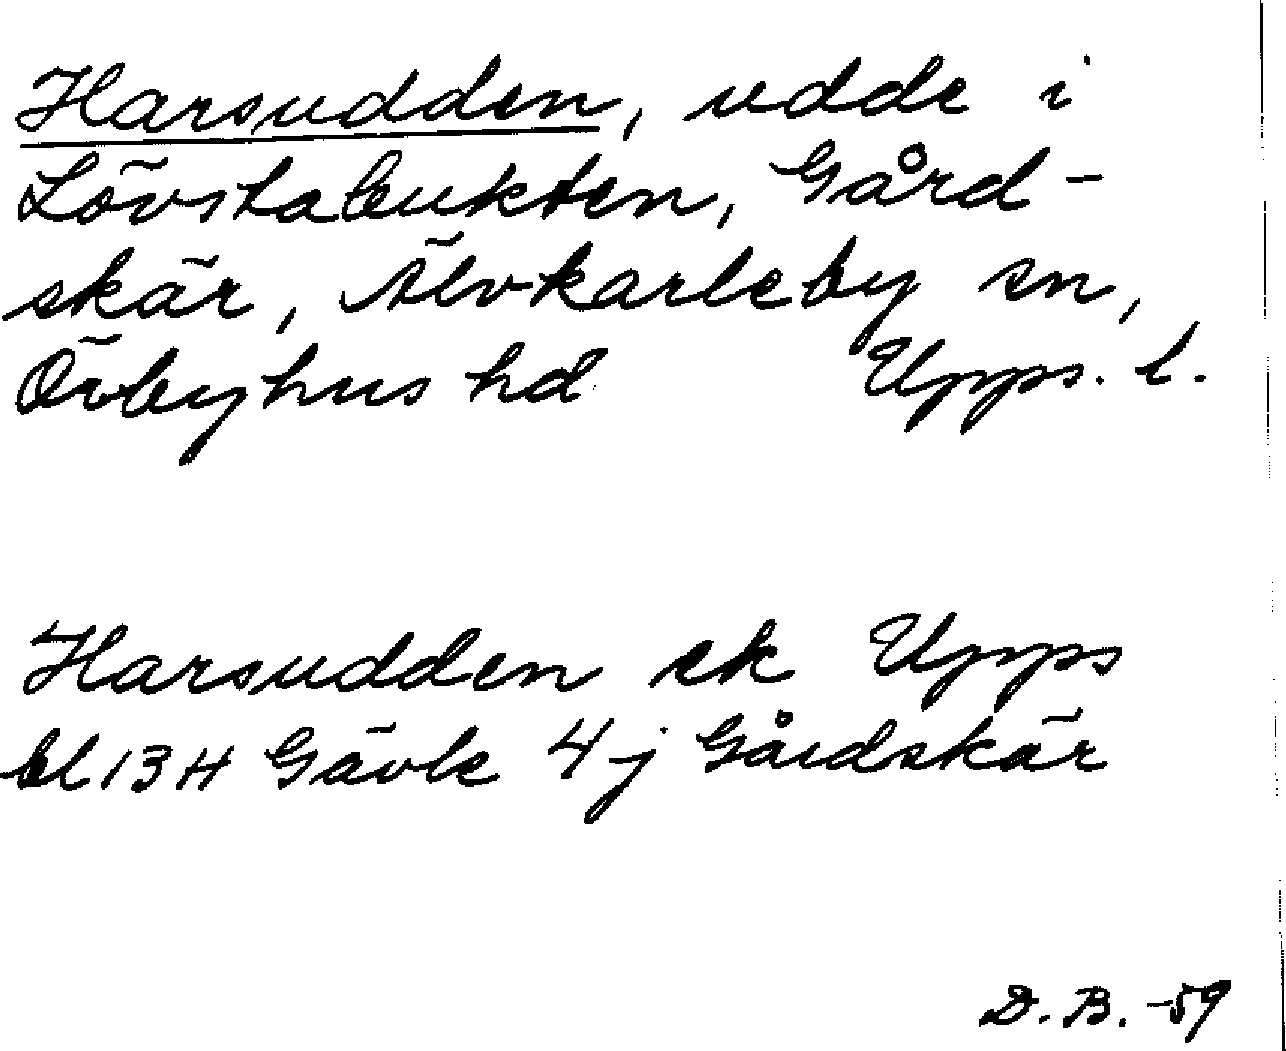 Harsudden, udde i
Lövstabukten, Gård-
skär, Älvkarleby sn,
Örbyhus hd Upps. l.
Harsudden ek Upps
bl 13 H Gävle 4 j Gårdskär
D. B. -59